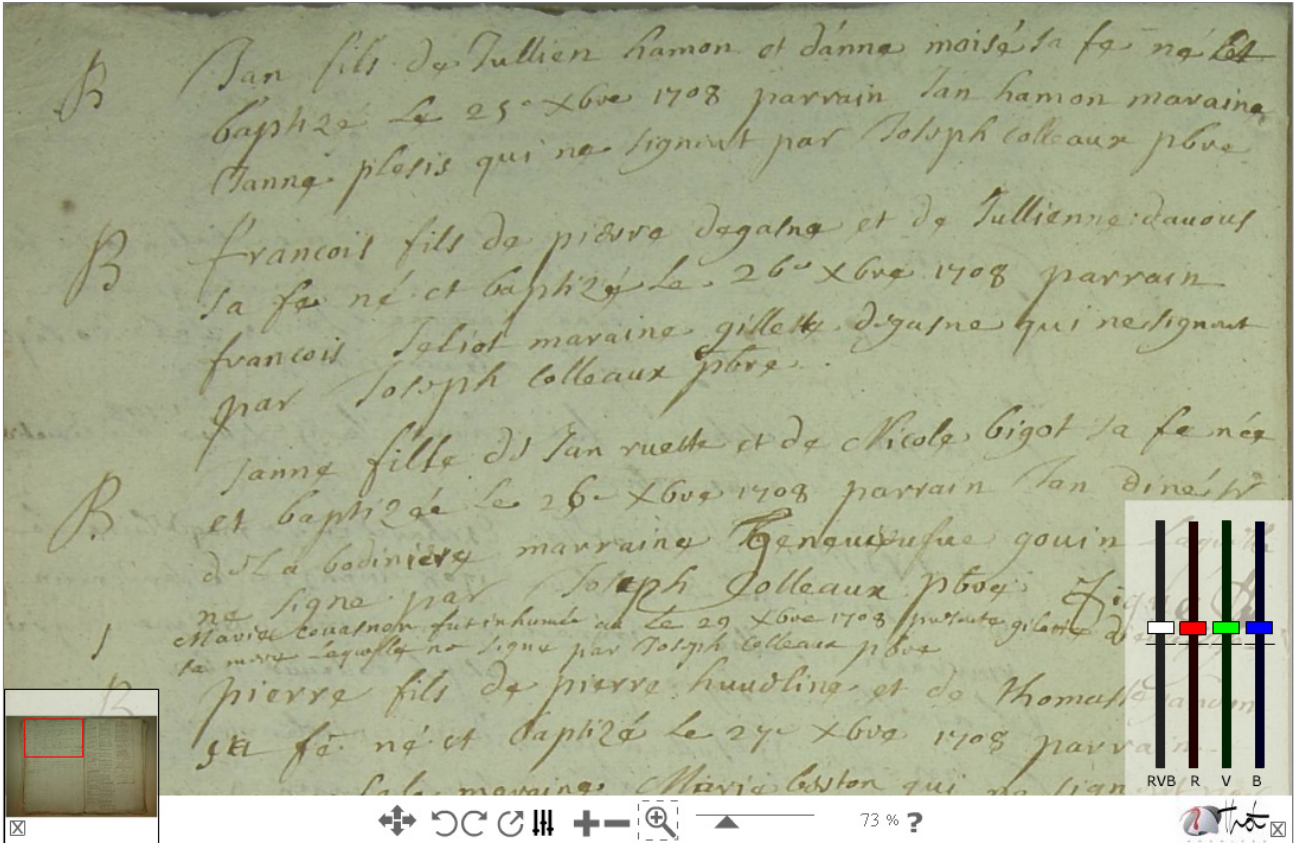 B Jan fils de Jullien hamon et d'anne moisé sa fe né et
baptizé Le 25e Xbre 1708 parrain Jan hamon maraine
Janne plesis qui ne signent par Joseph Colleaux pbre
B francois fils de pierre degasne et de Jullienne dauous
sa fe né et baptizé Le 26e Xbre 1708 parrain
francois maraine gillette degasne qui ne signent
par Joseph Colleaux pbre
Janne fille de Jan ruette et de Nicole bigot sa fe née
B et baptizée Le 26e Xbre 1708 parrain Jan
de La bodiniere marraine gouin Laquelle
ne signe par Joseph Colleaux pbre
Marie couasnon fut inhumée Le 29 Xbre 1708
sa mere Laquelle ne signe par Joseph Colleaux pbre
B pierre fils de pierre et de thomasse
sa fe né et baptizé Le 27e Xbre 1708 parrain
maraine Marie qui ne signent
RVB R V B
73 % ?